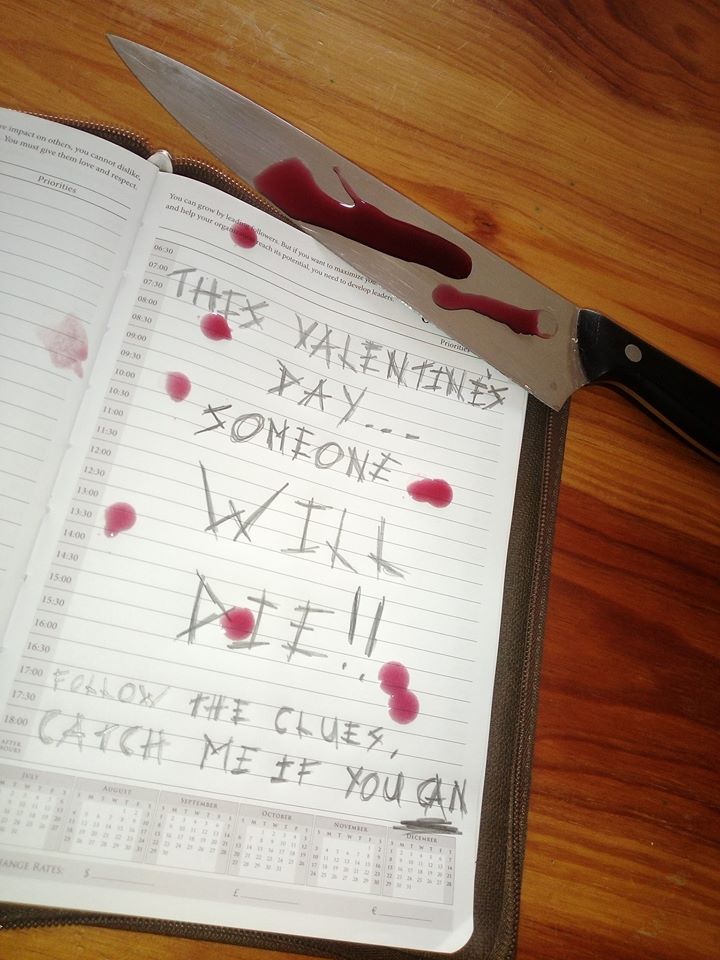 re impact on others, you cannot dislike.
You must give them love and respect.
Priorities
You can grow by leading followers. But if you want to maximize you
and help your organiz reach its potential, you need to develop leaders.
Priorities
06:30
07:00
07:30
08:00
08:30
09:00
09:30
10:00
10:30
11:00
11:30
12:00
12:30
13:00
13:30
14:00
14:30
15:00
15:30
16:00
16:30
17:00
17:30
18:00
AFTER
HOURS
THIS VALENTINE'S
DAY...
SOMEONE
WILL
DIE!!
FOLLOW THE CLUES,
CATCH ME IF YOU CAN
JULY AUGUST SEPTEMBER OCTOBER NOVEMBER DECEMBER
HANGE RATES: $
£
€